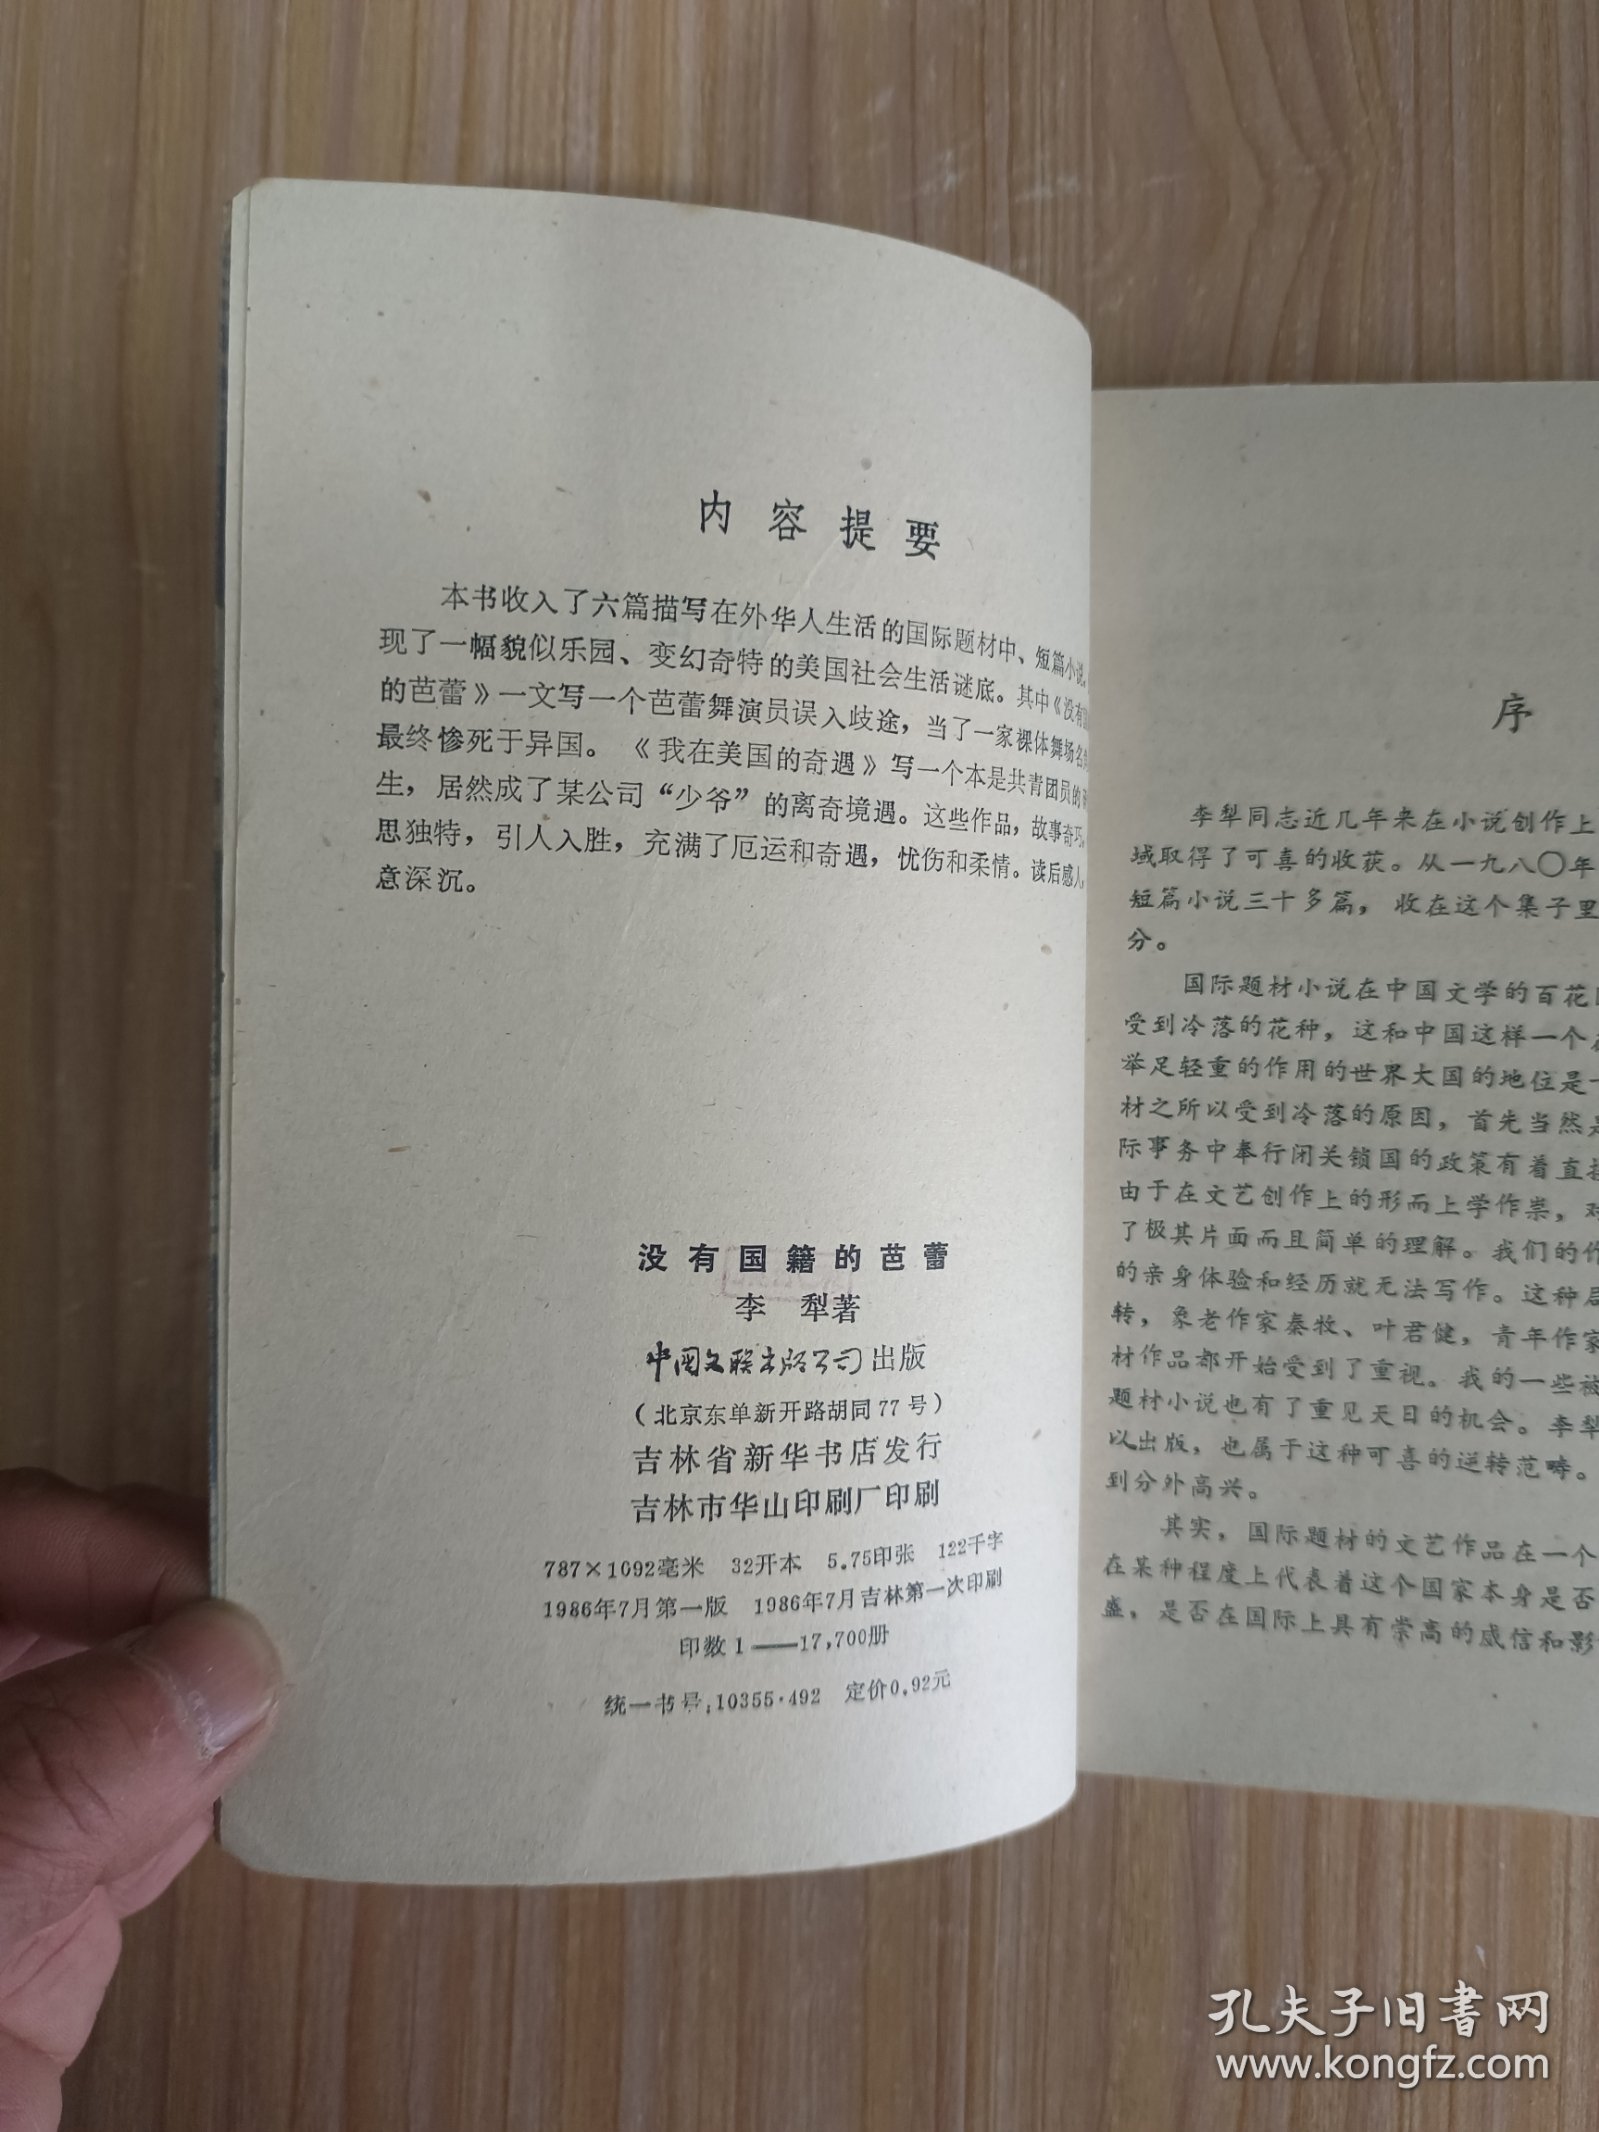 内容提要
本书收入了六篇描写在外华人生活的国际题材中、短篇小说，
现了一幅貌似乐园、变幻奇特的美国社会生活谜底。其中《没有
的芭蕾》一文写一个芭蕾舞演员误入歧途，当了一家裸体舞场名
最终惨死于异国。《我在美国的奇遇》写一个本是共青团员的
生，居然成了某公司“少爷”的离奇境遇。这些作品，故事奇巧，
思独特，引人入胜，充满了厄运和奇遇，忧伤和柔情。读后感人，
意深沉。
没有国籍的芭蕾
李 犁著
中国文联出版公司出版
（北京东单新开路胡同77号）
吉林省新华书店发行
吉林市华山印刷厂印刷
787×1092毫米 32开本 5.75印张 122千字
1986年7月第一版 1986年7月吉林第一次印刷
印数1——17,700册
统一书号:10355·492 定价0.92元
序
李犁同志近几年来在小说创作上
域取得了可喜的收获。从一九八〇年
短篇小说三十多篇，收在这个集子里
分。
国际题材小说在中国文学的百花
受到冷落的花种，这和中国这样一个
举足轻重的作用的世界大国的地位是
材之所以受到冷落的原因，首先当然是
际事务中奉行闭关锁国的政策有着直接
由于在文艺创作上的形而上学作祟，对
了极其片面而且简单的理解。我们的作
的亲身体验和经历就无法写作。这种
转，象老作家秦牧、叶君健，青年作家
材作品都开始受到了重视。我的一些被
题材小说也有了重见天日的机会。李犁
以出版，也属于这种可喜的逆转范畴。
到分外高兴。
其实，国际题材的文艺作品在一个
在某种程度上代表着这个国家本身是否
盛，是否在国际上具有崇高的威信和影
孔夫子旧书网
www.kongfz.com